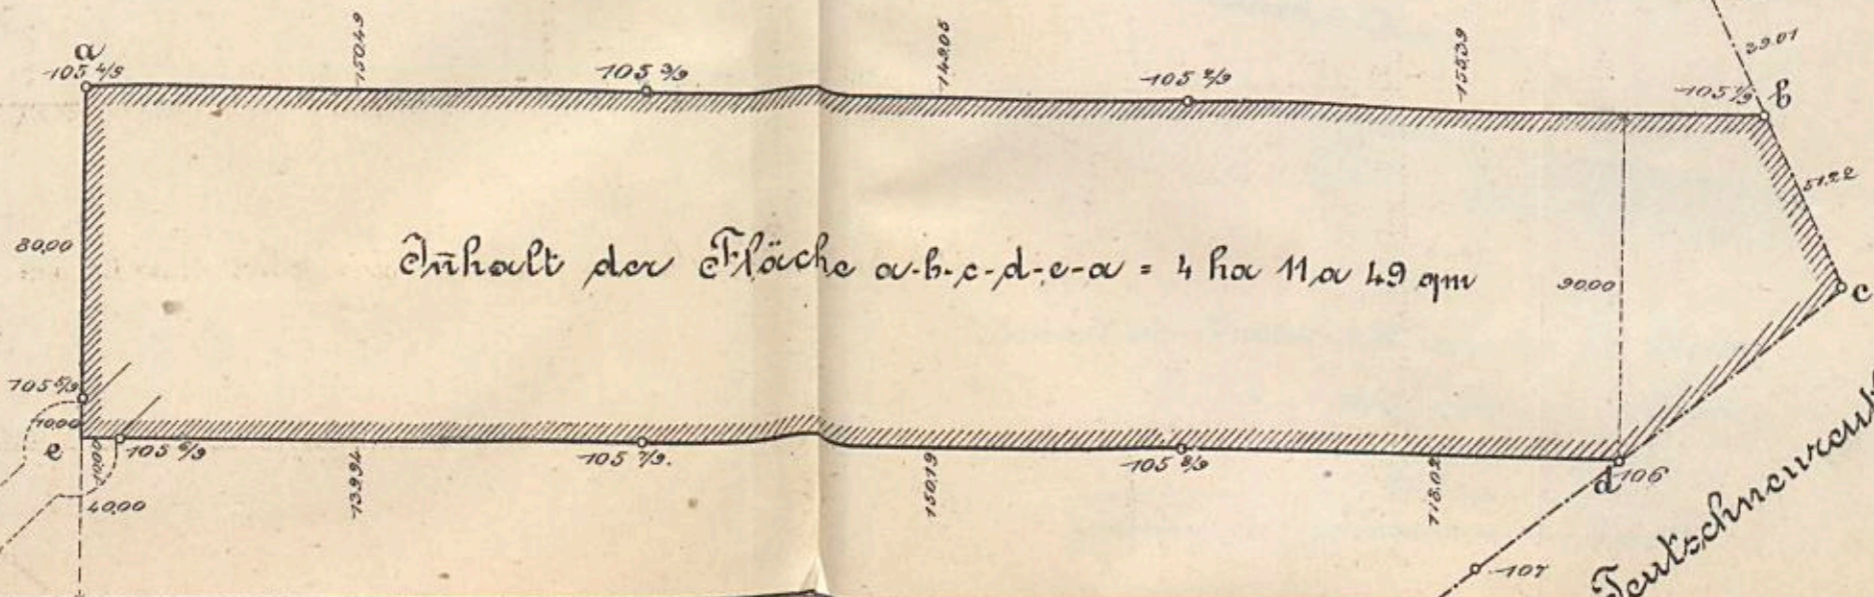 a
105 4/9
150,49
105 3/9
149,05
105 2/9
155,39
105 1/9
b
39,01
51,22
80,00
Inhalt der Fläche a-b-c-d-e-a = 4 ha 11 a 49 qm
90,00
c
105 5/9
10,00
e
10,00
105 6/9
40,00
139,97
105 7/9.
150,19
105 8/9
118,02
d
106
107